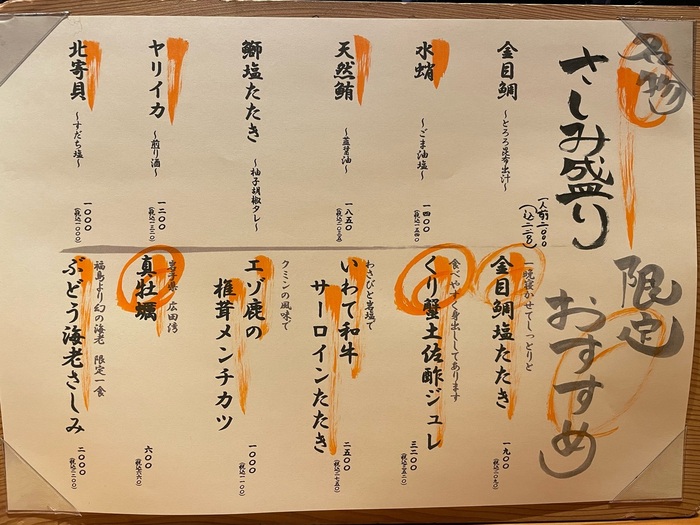 名物
さしみ盛り
一人前二、〇〇〇
(込二二〇〇)
金目鯛 〜とろろ昆布出汁〜
水蛸 〜ごま油塩〜 一四〇〇
(税込一五四〇)
天然鮪 醤油〜 一八五〇
(税込二〇三五)
鰤塩たたき 〜柚子胡椒タレ〜
ヤリイカ 〜煎り酒〜 一二〇〇
(税込一三二〇)
北寄貝 〜すだち塩〜 一〇〇〇
(税込一一〇〇)
限定
おすすめ
一晩寝かせてしっとりと
金目鯛塩たたき 一九〇〇
(税込二〇九〇)
食べやすく身出ししてあります
くり蟹土佐酢ジュレ 三二〇〇
(税込三五二〇)
わさびと岩塩で
いわて和牛
サーロインたたき 二五〇〇
(税込二七五〇)
クミンの風味で
エゾ鹿の
椎茸メンチカツ 一〇〇〇
(税込一一〇〇)
岩手県 広田湾
真牡蠣 六〇〇
(税込六六〇)
福島より幻の海老 限定一食
ぶどう海老さしみ 二〇〇〇
(税込二二〇〇)